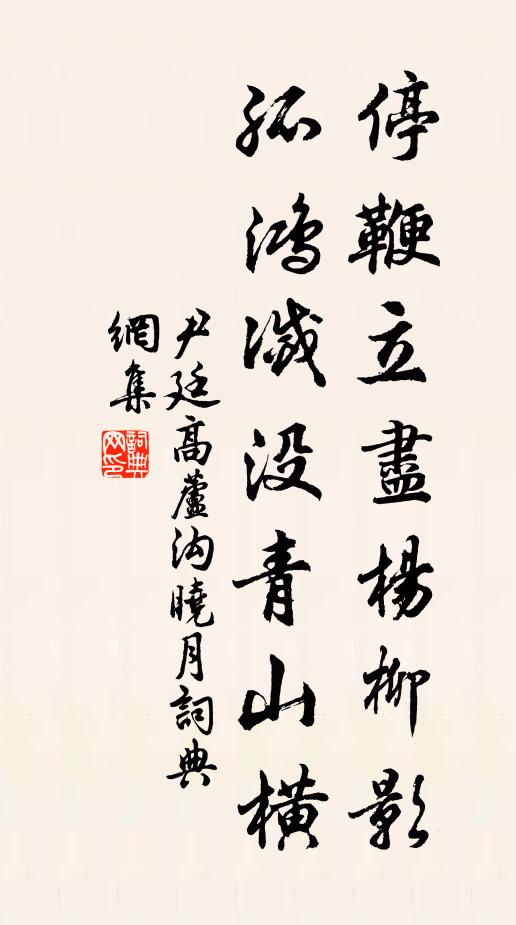 停鞭立盡楊柳影
孤鴻滅沒青山橫
尹廷高蘆溝曉月詞典
網集
詞典網印